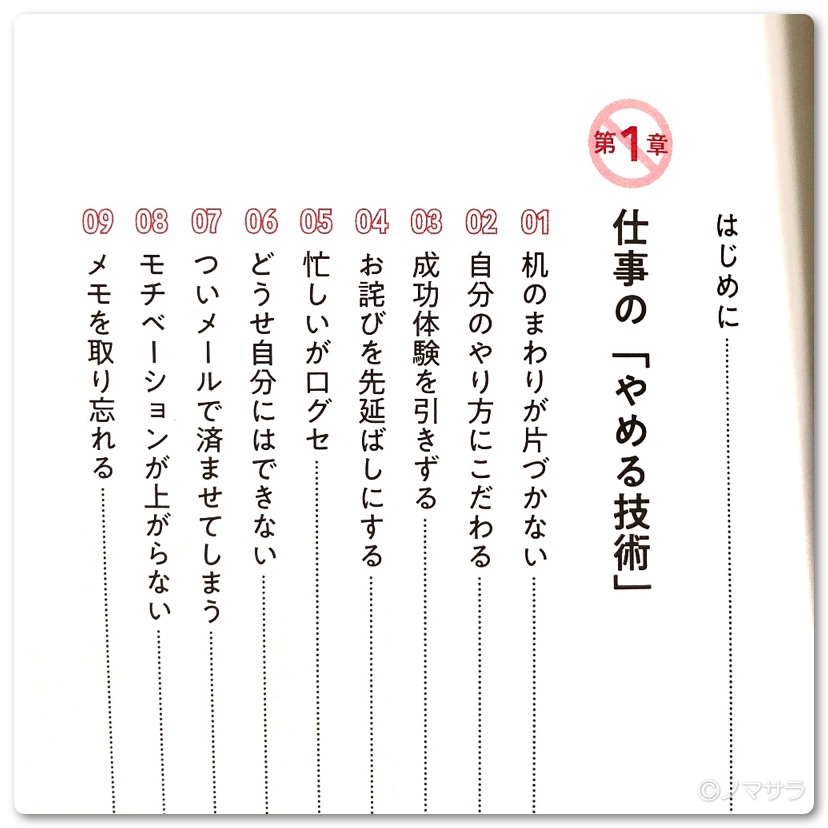 はじめに
第1章
仕事の「やめる技術」
01 机のまわりが片づかない
02 自分のやり方にこだわる
03 成功体験を引きずる
04 お詫びを先延ばしにする
05 忙しいが口グセ
06 どうせ自分にはできない
07 ついメールで済ませてしまう
08 モチベーションが上がらない
09 メモを取り忘れる
©ノマサラ